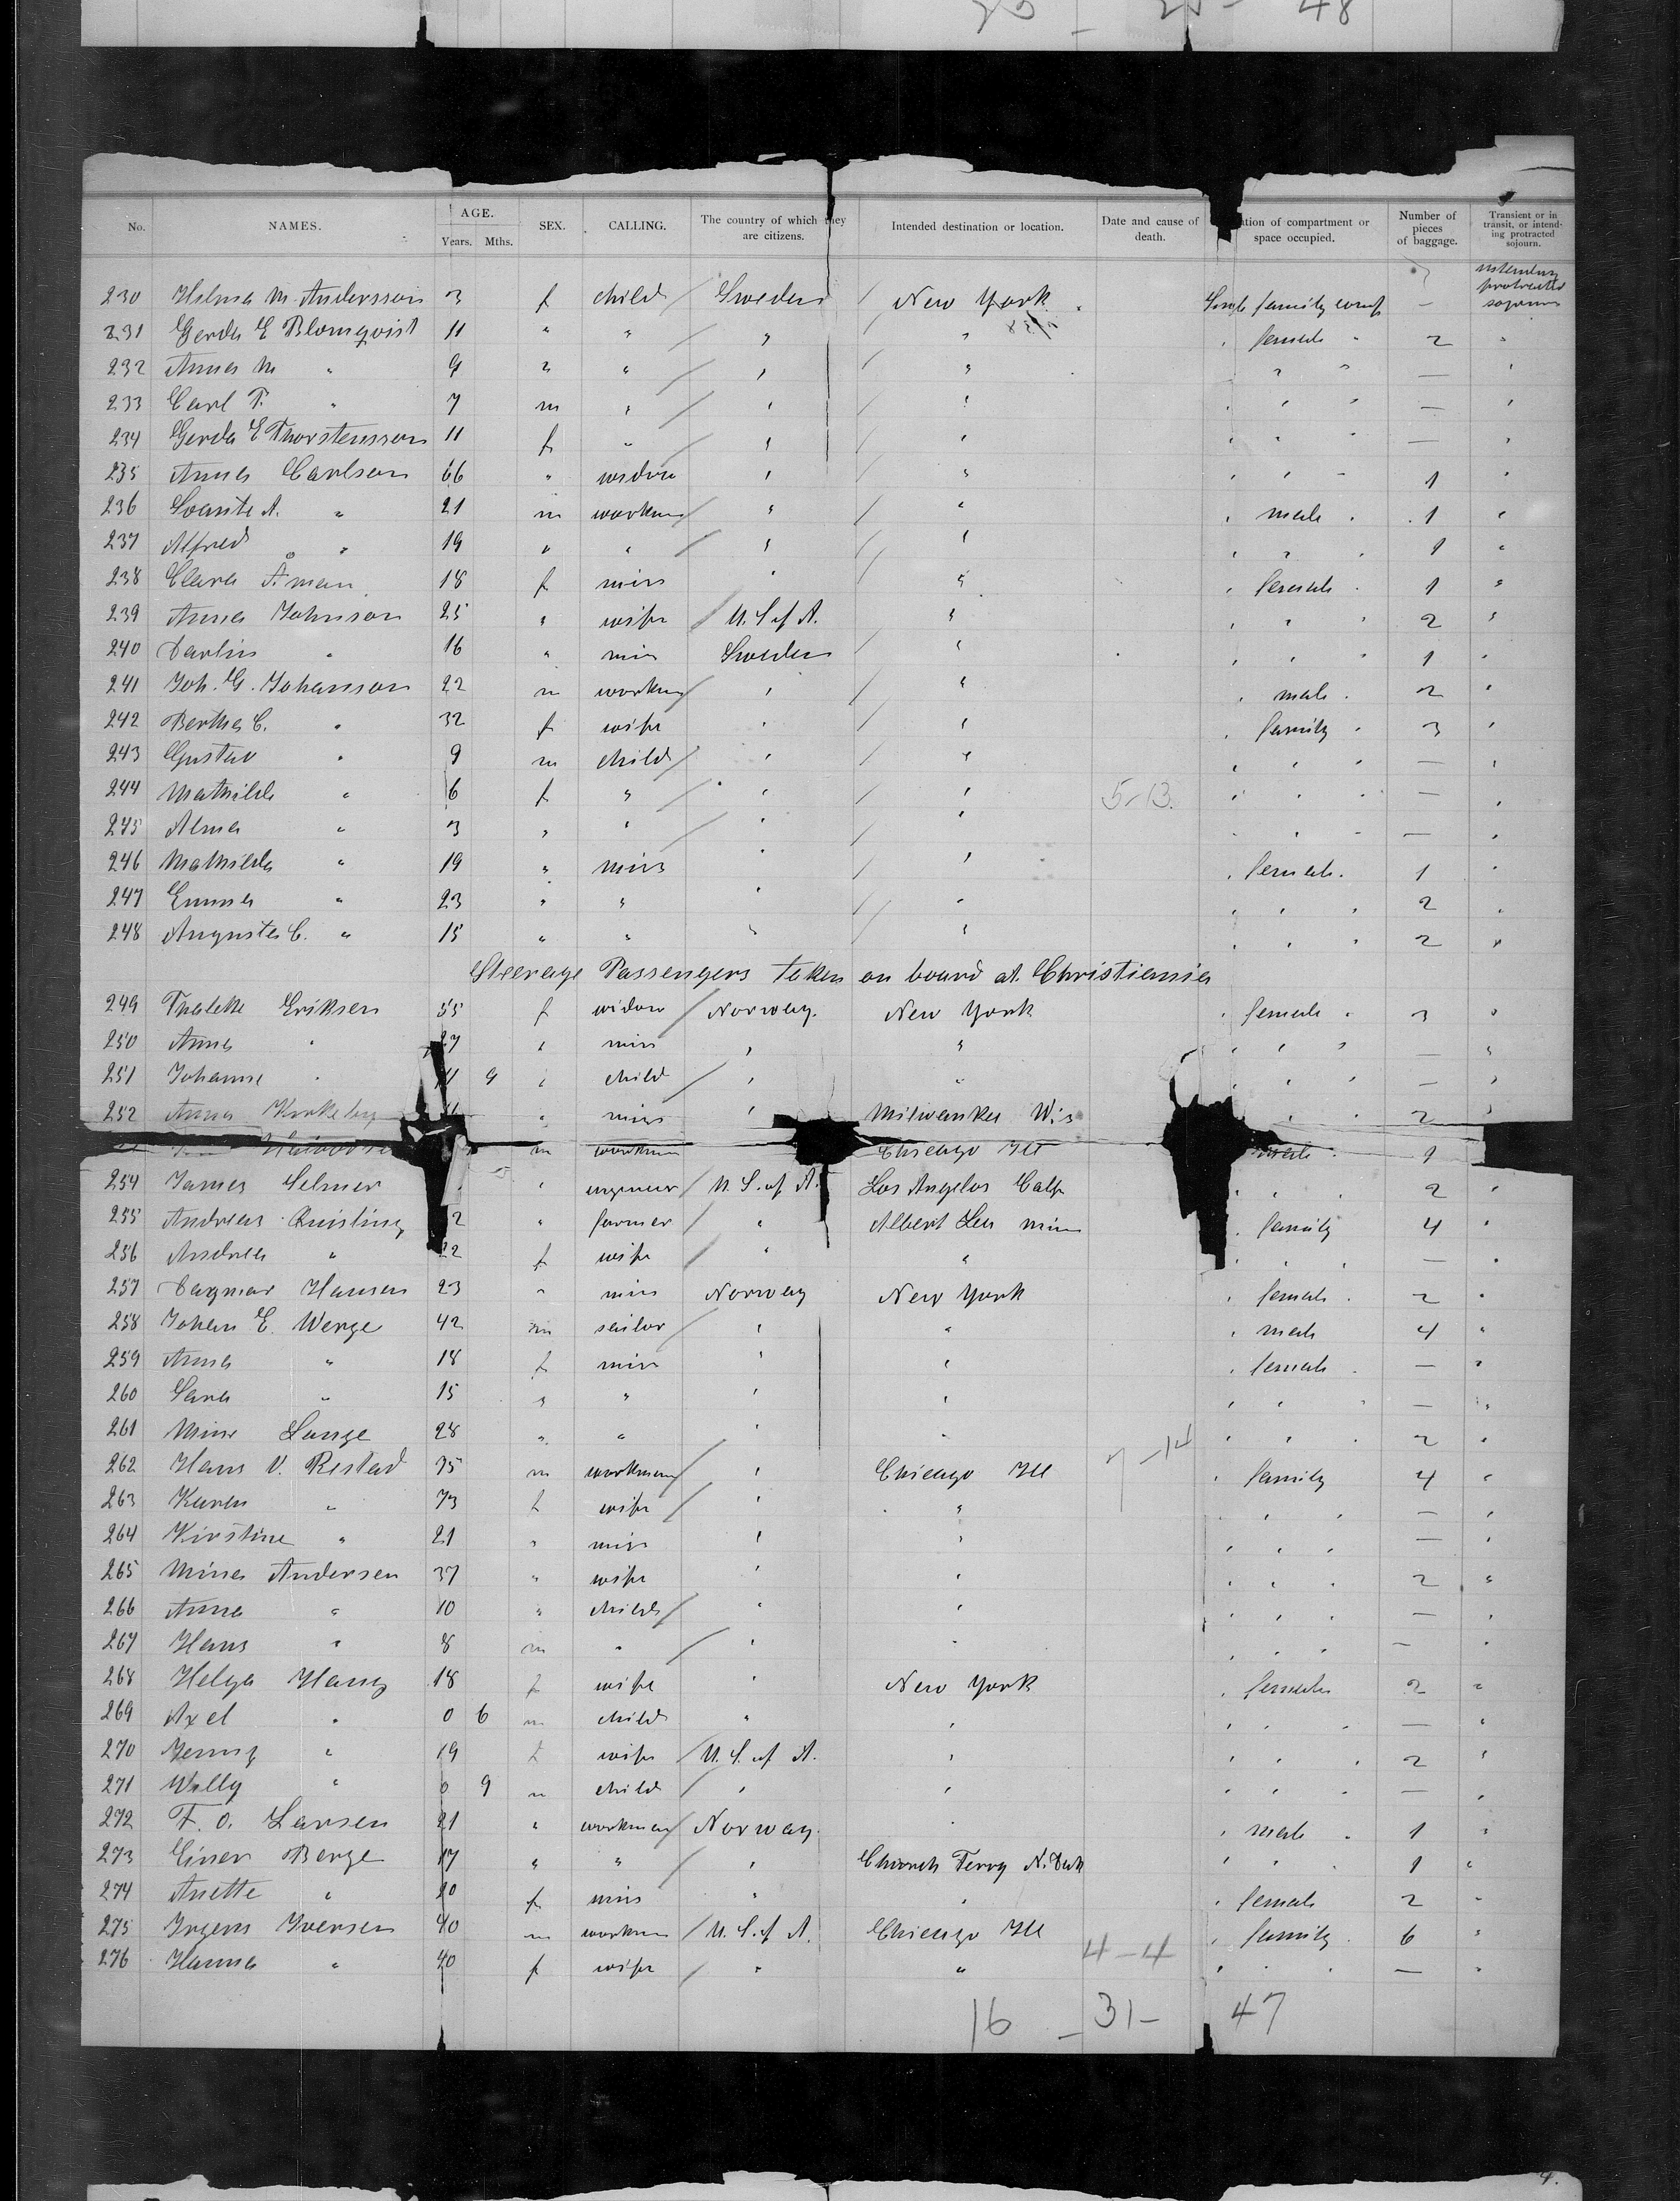 25 - 23 - 48
No. NAMES. AGE. Years. Mths. SEX. CALLING. The country of which they are citizens. Intended destination or location. Date and cause of death. ation of compartment or space occupied. Number of pieces of baggage. Transient or in transit, or intending protracted sojourn.
230 Hilma M. Andersson 3 f child Sweden New York family comp — intending protracted sojourn
231 Gerda E Blomqvist 11 " " " " " female " 2 "
232 Anna M " 9 " " " " " " " — "
233 Carl T. " 7 m " " " " " " — "
234 Gerda E Thorstensson 11 f " " " " " " — "
235 Anna Carlson 66 " widow " " " " " 1 "
236 Svante A. " 21 m workman " " " male " 1 "
237 Alfred " 19 " " " " " " " 1 "
238 Clara Åman 18 f miss " " " female " 1 "
239 Anna Johnson 25 " wife U.S. of A. " " " " 2 "
240 Carlin " 16 " miss Sweden " " " " 1 "
241 Joh. G. Johanson 22 m workman " " " male " 2 "
242 Bertha C. " 32 f wife " " " family " 3 "
243 Gustav " 9 m child " " " " " — "
244 Mathilde " 6 f " " " 5-13. " " " — "
245 Alma " 3 " " " " " " " — "
246 Mathilda " 19 " miss " " " female " 1 "
247 Emma " 23 " " " " " " " 2 "
248 Augusta C. " 15 " " " " " " " 2 "
Steerage Passengers taken on board at Christiania
249 Eriksen 55 f widow Norway. New York " female " 3 "
250 Anna " 27 " miss " " " " " — "
251 Johanne " 9 " child " " " " " — "
252 Anna Kirkeby " miss " Milwaukee Wis " " 2 "
m workman Chicago Ill male " 1
254 James Selmer " engineer U.S. of A. Los Angelos Calf " " " 2 "
255 Andreas Quisling 2 " farmer " Albert Lea Minn " family 4 "
256 Andrea " 22 f wife " " " " " — "
257 Dagmar Hansen 23 " miss Norway New York " female " 2 "
258 Johan E. Werge 42 m sailor " " " male 4 "
259 Anna " 18 f miss " " " female " — "
260 Sara " 15 " " " " " " " — "
261 Mine Lange 28 " " " " " " " 2 "
262 Hans V. Restad 75 m workman " Chicago Ill 7-14 " family 4 "
263 Karen " 73 f wife " " " " " — "
264 Kirstine " 21 " miss " " " " " — "
265 Mina Andersen 37 " wife " " " " " 2 "
266 Anna " 10 " child " " " " " — "
267 Hans " 8 m " " " " " — "
268 Helga Haug 18 f wife " New York " female 2 "
269 Axel " 0 6 m child " " " " " — "
270 Jenny " 19 f wife U.S. of A. " " " " 2 "
271 Willy " 0 9 m child " " " " " — "
272 F. O. Larsen 21 " workman Norway. " " male " 1 "
273 Einar Berge 17 " " " Church Ferry N. Dak " " 1 "
274 Anette " 20 f miss " " " female 2 "
275 Jrgens Iversen 40 m workman U.S. of A. Chicago Ill " family " 6 "
276 Hanna " 40 f wife " " 4-4 " " " — "
16 - 31 - 47